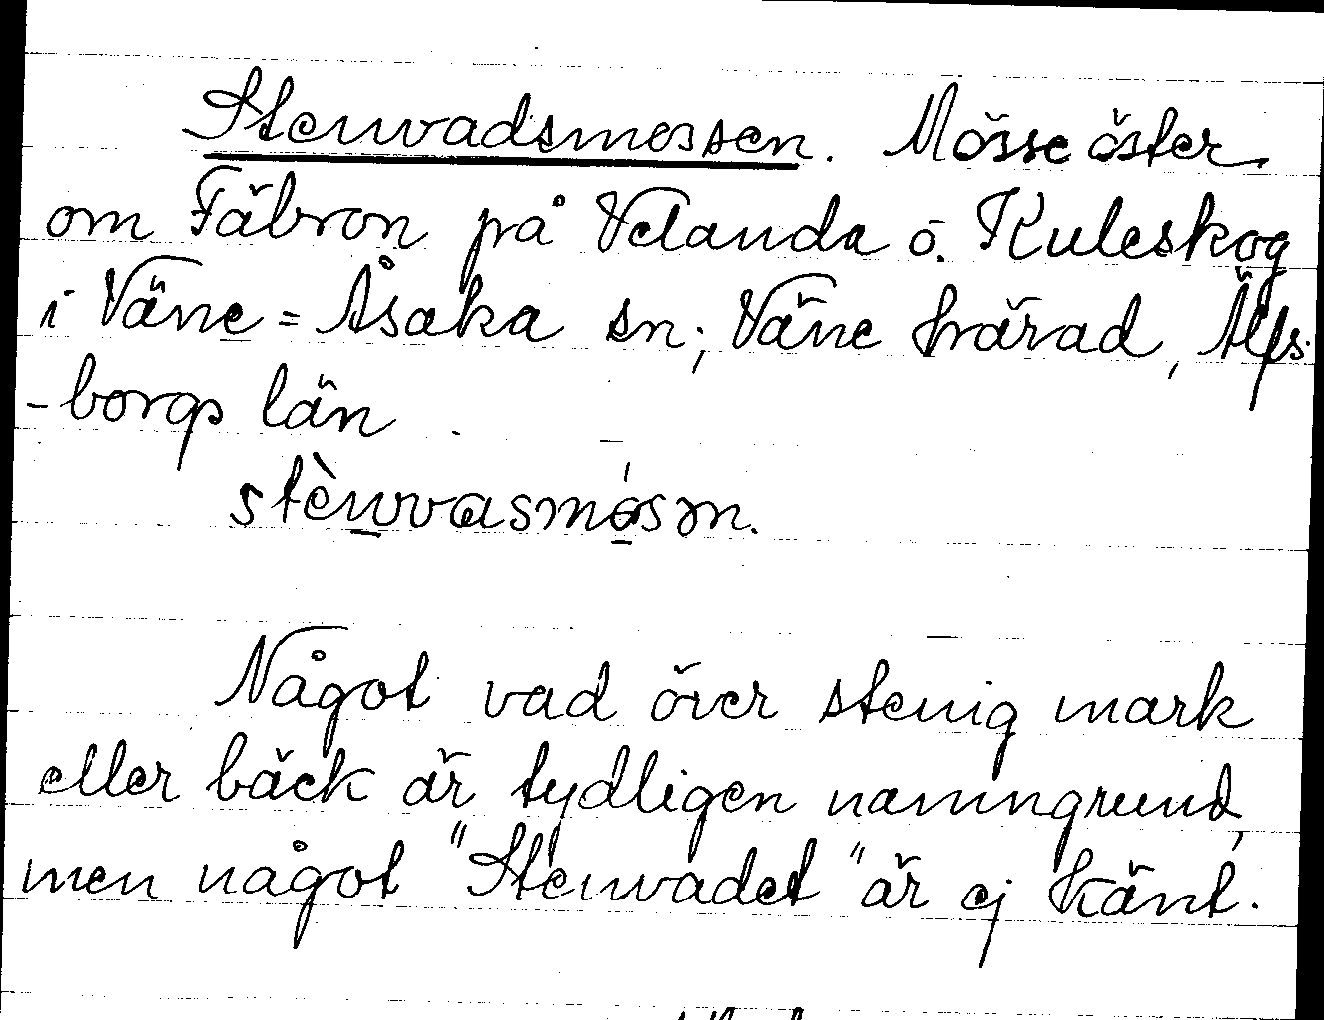 Stenvadsmossen. Mosse öster
om Fäbron på Velanda o. Kuleskog
i Väne=Åsaka sn; Väne härad, Älfs-
-borgs län.
stènvasmósm.
Något vad över stenig mark
eller bäck är tydligen namngrund,
men något "Stenvadet" är ej känt.